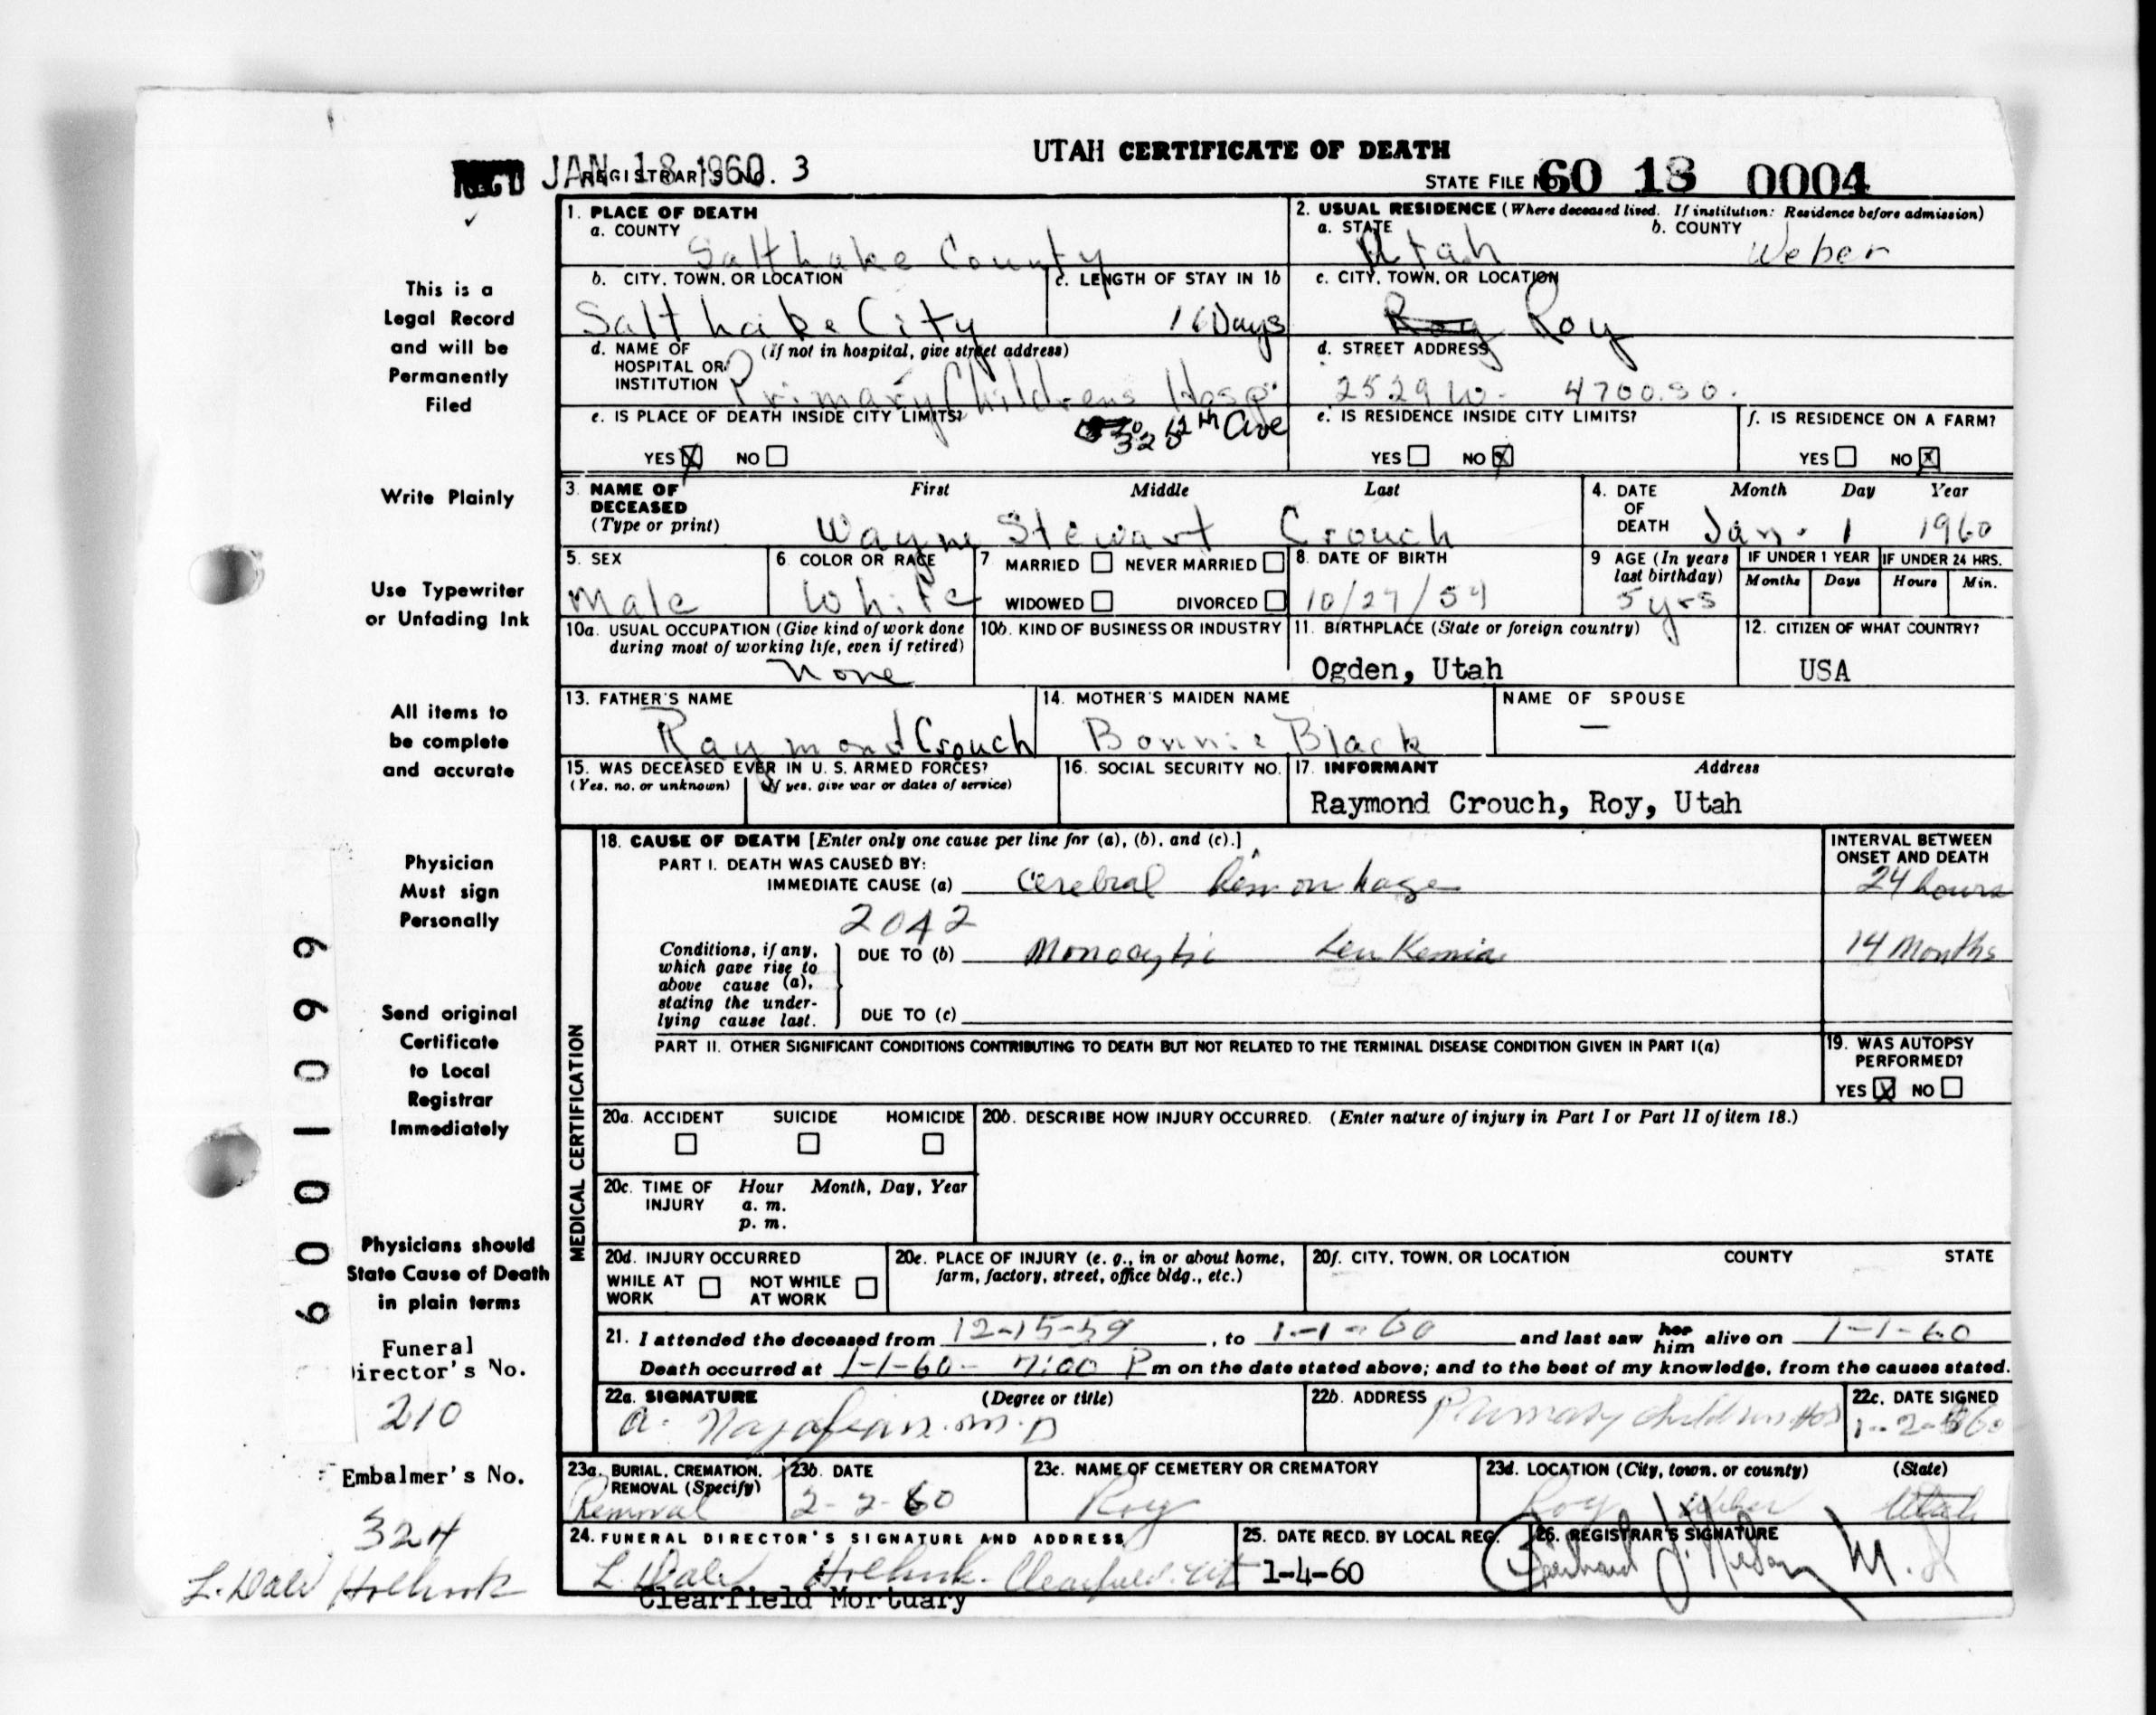 UTAH CERTIFICATE OF DEATH
REC'D JAN 18 1960
REGISTRAR'S NO. 3
STATE FILE NO. 60 18 0004
This is a
Legal Record
and will be
Permanently
Filed
Write Plainly
Use Typewriter
or Unfading Ink
All items to
be complete
and accurate
Physician
Must sign
Personally
Send original
Certificate
to Local
Registrar
Immediately
Physicians should
State Cause of Death
in plain terms
Funeral
Director's No.
210
Embalmer's No.
324
L. Dale
6001099
1. PLACE OF DEATH
a. COUNTY
Salt Lake County
2. USUAL RESIDENCE (Where deceased lived. If institution: Residence before admission)
a. STATE Utah
b. COUNTY Weber
b. CITY, TOWN, OR LOCATION
Salt Lake City
c. LENGTH OF STAY IN 1b
16 Days
c. CITY, TOWN, OR LOCATION
Roy Roy
d. NAME OF HOSPITAL OR INSTITUTION (If not in hospital, give street address)
Primary Childrens Hosp.
320 12th Ave
d. STREET ADDRESS
2529 W. 4700 SO.
e. IS PLACE OF DEATH INSIDE CITY LIMITS?
YES X NO
e. IS RESIDENCE INSIDE CITY LIMITS?
YES NO X
f. IS RESIDENCE ON A FARM?
YES NO X
3. NAME OF DECEASED (Type or print) First Middle Last
Wayne Stewart Crouch
4. DATE OF DEATH Month Day Year
Jan. 1 1960
5. SEX
Male
6. COLOR OR RACE
White
7 MARRIED NEVER MARRIED
WIDOWED DIVORCED
8. DATE OF BIRTH
10/27/54
9 AGE (In years last birthday)
5 yrs
IF UNDER 1 YEAR
Months Days
IF UNDER 24 HRS.
Hours Min.
10a. USUAL OCCUPATION (Give kind of work done during most of working life, even if retired)
None
10b. KIND OF BUSINESS OR INDUSTRY
11. BIRTHPLACE (State or foreign country)
Ogden, Utah
12. CITIZEN OF WHAT COUNTRY?
USA
13. FATHER'S NAME
Raymond Crouch
14. MOTHER'S MAIDEN NAME
Bonnie Black
NAME OF SPOUSE
—
15. WAS DECEASED EVER IN U. S. ARMED FORCES?
(Yes, no, or unknown) (If yes, give war or dates of service)
16. SOCIAL SECURITY NO.
17. INFORMANT Address
Raymond Crouch, Roy, Utah
MEDICAL CERTIFICATION
18. CAUSE OF DEATH [Enter only one cause per line for (a), (b), and (c).]
PART I. DEATH WAS CAUSED BY:
IMMEDIATE CAUSE (a) Cerebral hemorrhage
INTERVAL BETWEEN ONSET AND DEATH
24 hours
2042
Conditions, if any, which gave rise to above cause (a), stating the underlying cause last.
DUE TO (b) Monocytic Leukemia
14 Months
DUE TO (c)
PART II. OTHER SIGNIFICANT CONDITIONS CONTRIBUTING TO DEATH BUT NOT RELATED TO THE TERMINAL DISEASE CONDITION GIVEN IN PART I(a)
19. WAS AUTOPSY PERFORMED?
YES X NO
20a. ACCIDENT SUICIDE HOMICIDE
20b. DESCRIBE HOW INJURY OCCURRED. (Enter nature of injury in Part I or Part II of item 18.)
20c. TIME OF INJURY Hour Month, Day, Year
a. m.
p. m.
20d. INJURY OCCURRED
WHILE AT WORK NOT WHILE AT WORK
20e. PLACE OF INJURY (e. g., in or about home, farm, factory, street, office bldg., etc.)
20f. CITY, TOWN, OR LOCATION COUNTY STATE
21. I attended the deceased from 12-15-59, to 1-1-60 and last saw her him alive on 1-1-60
Death occurred at 1-1-60- 7:00 P m on the date stated above; and to the best of my knowledge, from the causes stated.
22a. SIGNATURE (Degree or title)
A. Najafian. M.D
22b. ADDRESS
Primary Childrens Hos
22c. DATE SIGNED
1-2-60
23a. BURIAL, CREMATION, REMOVAL (Specify)
Removal
23b. DATE
2-2-60
23c. NAME OF CEMETERY OR CREMATORY
Roy
23d. LOCATION (City, town, or county) (State)
Roy Weber Utah
24. FUNERAL DIRECTOR'S SIGNATURE AND ADDRESS
L. Dale Clearfield. Ut
Clearfield Mortuary
25. DATE RECD. BY LOCAL REG.
1-4-60
26. REGISTRAR'S SIGNATURE
M. D